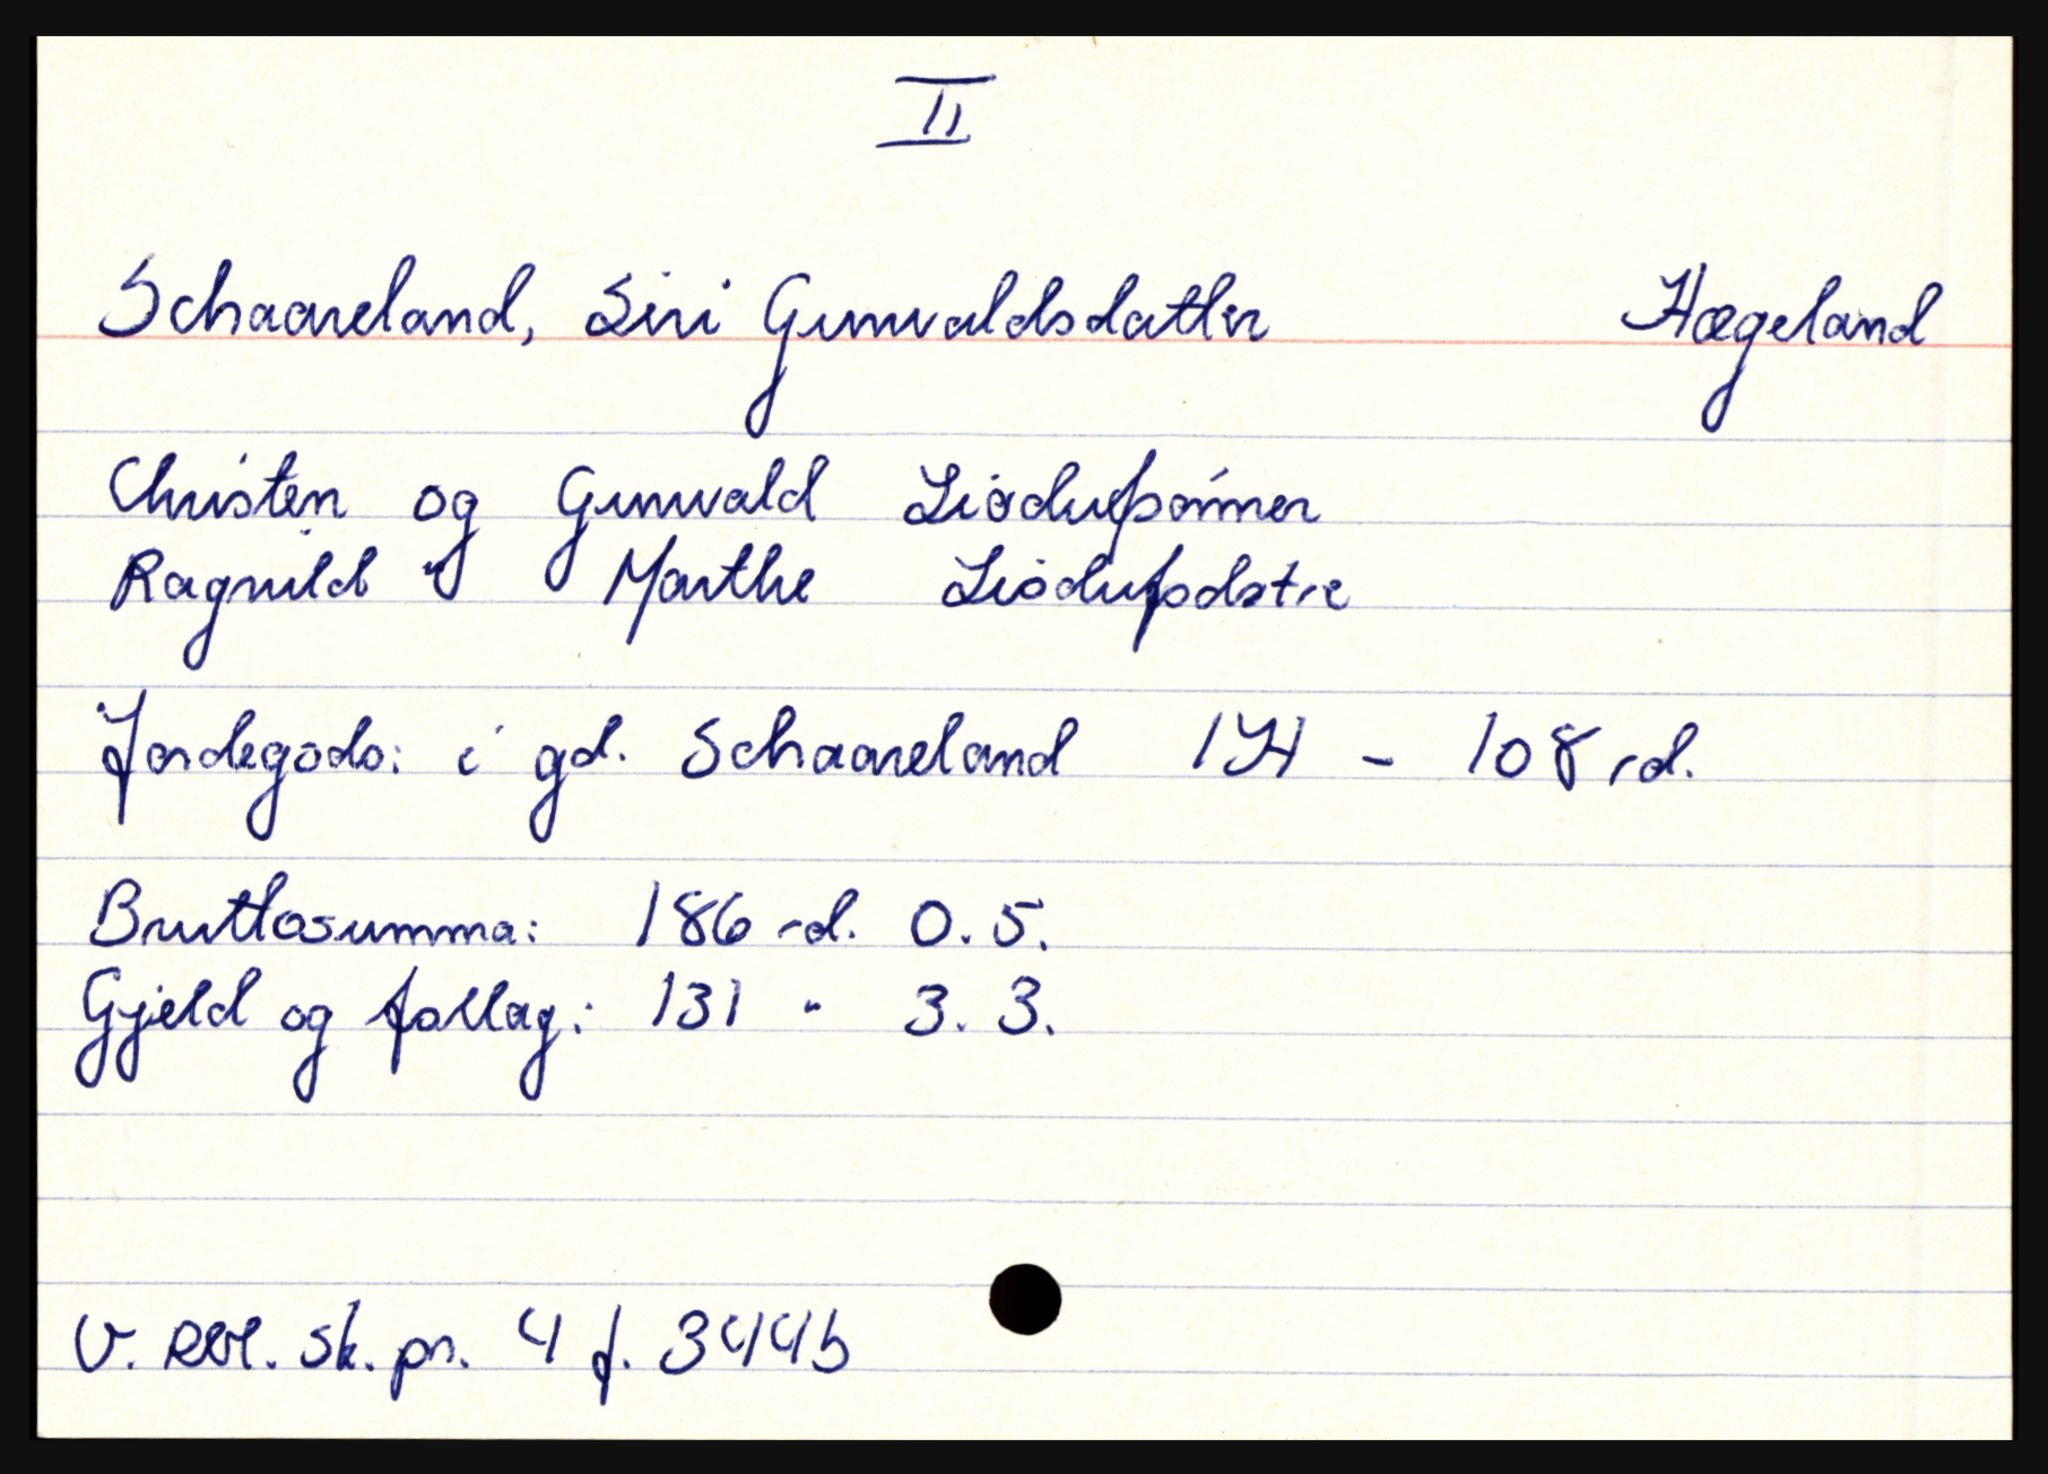 II
Schaareland, Siri Gunvaldsdatter Hægeland
Christen og Gunvald Liødufsønner
Ragnild " Marthe Liødufsdøtre
Jordegods: i gd. Schaareland 1 H - 108 rd.
Bruttosumma: 186 rd. 0. 5.
Gjeld og follag: 131 " 3. 3.
V. Rbl. sk. pr. 4 f. 344b